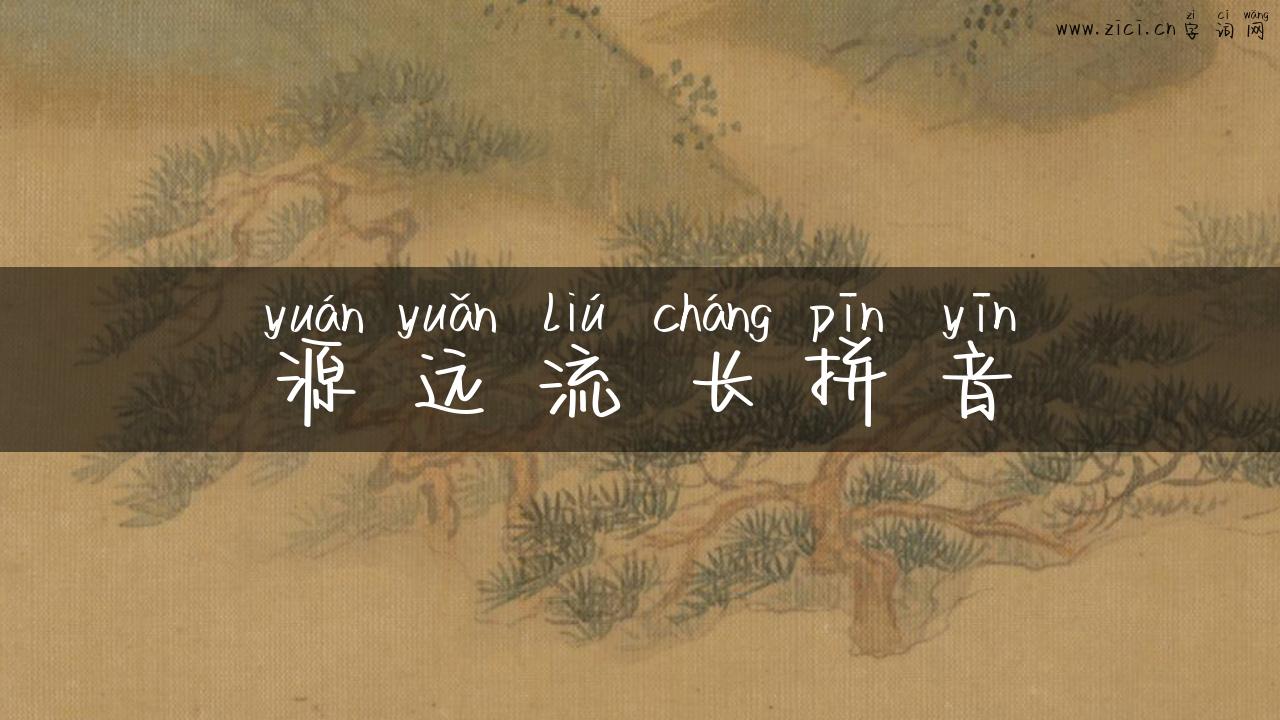 zì cí wǎng
www.zici.cn 字词网
yuán yuǎn liú cháng pīn yīn
源远流长拼音